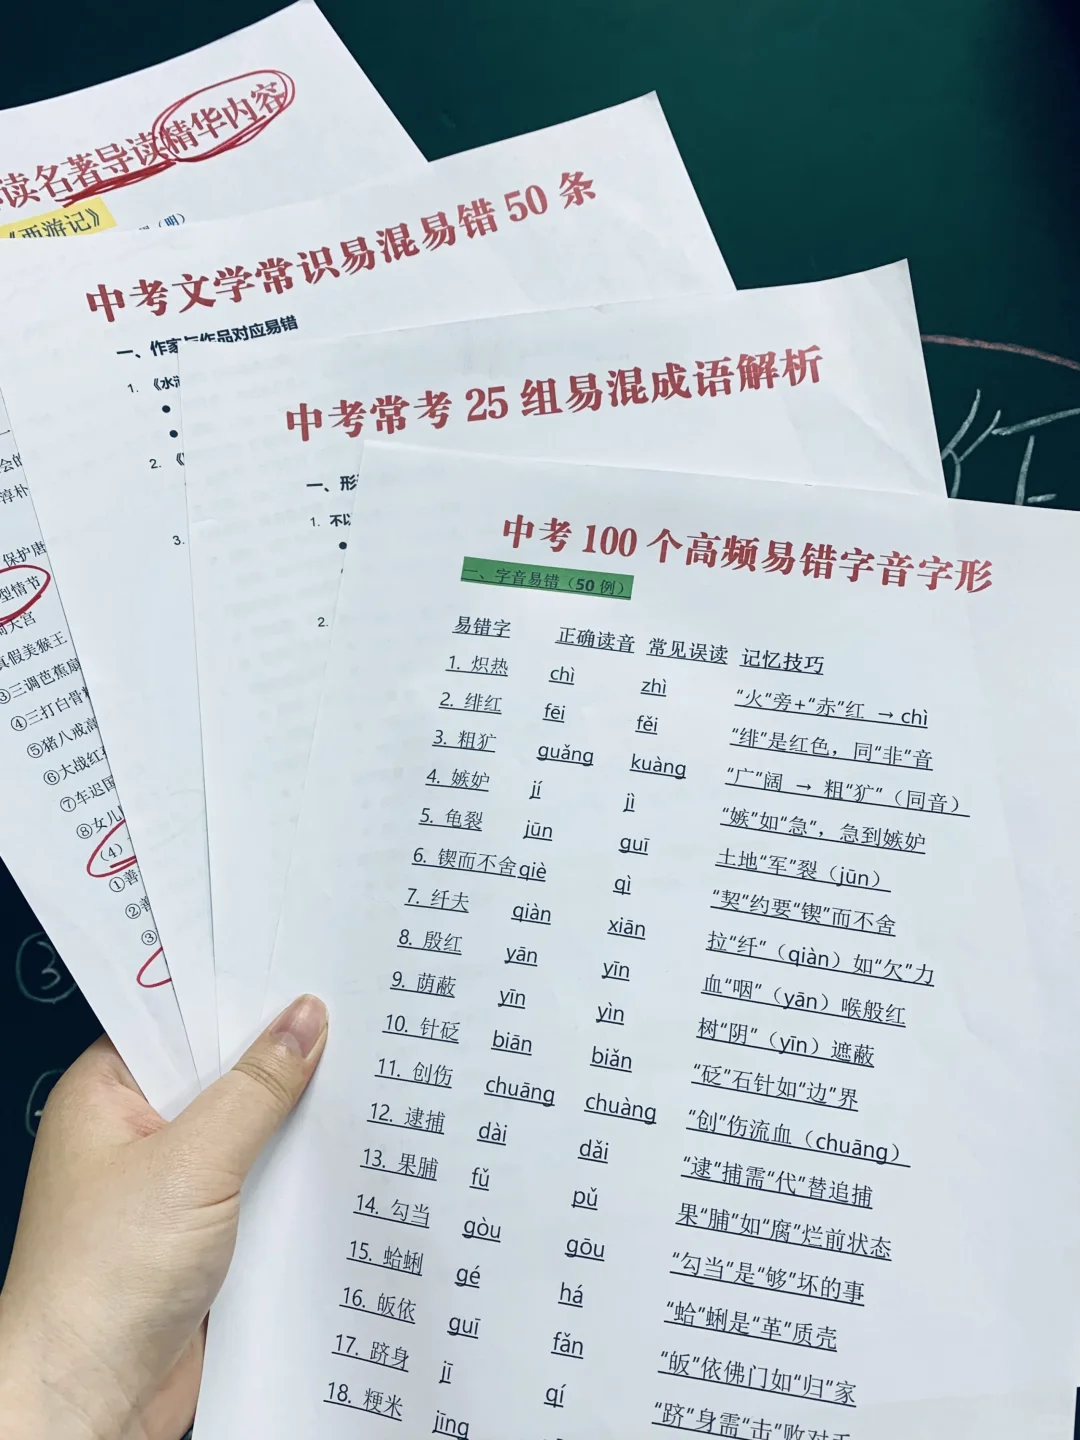 读名著导读精华内容
《西游记》
（明）
会的
淳朴
保护唐
型情节
闹天宫
真假美猴王
③三调芭蕉扇
④三打白骨精
⑤猪八戒高
⑥大战红孩
⑦车迟国
⑧女儿
（4）
①善
②善
③
中考文学常识易混易错 50 条
一、作家与作品对应易错
1. 《水浒
2. 《
3.
中考常考 25 组易混成语解析
一、形
1. 不以
2.
中考 100 个高频易错字音字形
一、字音易错（50 例）
易错字 正确读音 常见误读 记忆技巧
1. 炽热 chì zhì “火”旁+“赤”红 → chì
2. 绯红 fēi fěi “绯”是红色，同“非”音
3. 粗犷 guǎng kuàng “广”阔 → 粗“犷”（同音）
4. 嫉妒 jí jì “嫉”如“急”，急到嫉妒
5. 龟裂 jūn guī 土地“军”裂（jūn）
6. 锲而不舍 qiè qì “契”约要“锲”而不舍
7. 纤夫 qiàn xiān 拉“纤”（qiàn）如“欠”力
8. 殷红 yān yīn 血“咽”（yān）喉殷红
9. 荫蔽 yīn yìn 树“阴”（yīn）遮蔽
10. 针砭 biān biǎn “砭”石针如“边”界
11. 创伤 chuāng chuàng “创”伤流血（chuāng）
12. 逮捕 dài dǎi “逮”捕需“代”替追捕
13. 果脯 fǔ pǔ 果“脯”如“腐”烂前状态
14. 勾当 gòu gōu “勾当”是“够”坏的事
15. 蛤蜊 gé há “蛤”蜊是“革”质壳
16. 皈依 guī fǎn “皈”依佛门如“归”家
17. 跻身 jī qí “跻”身需“击”败对手
18. 粳米 jīng
③